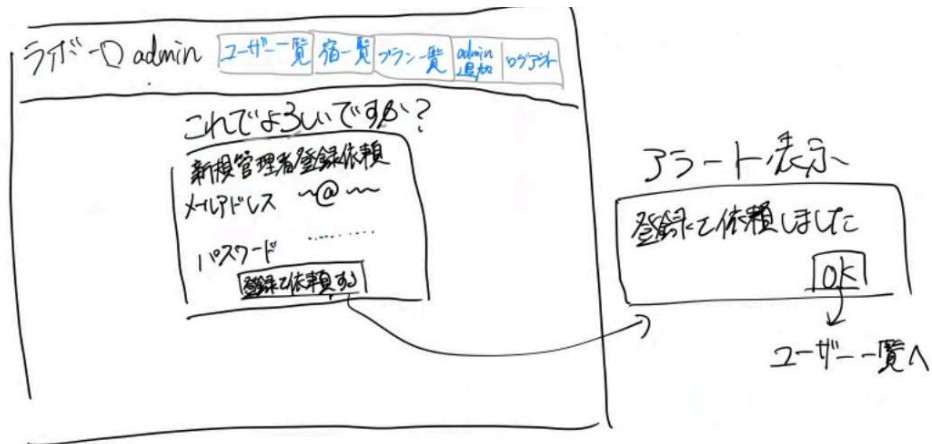 admin ユーザー一覧 宿一覧 プラン一覧 admin追加 ログアウト
これでよろしいですか?
新規管理者登録依頼
メールアドレス ~@~
パスワード ........
登録を依頼する
アラート表示
登録を依頼しました
OK
ユーザー一覧へ